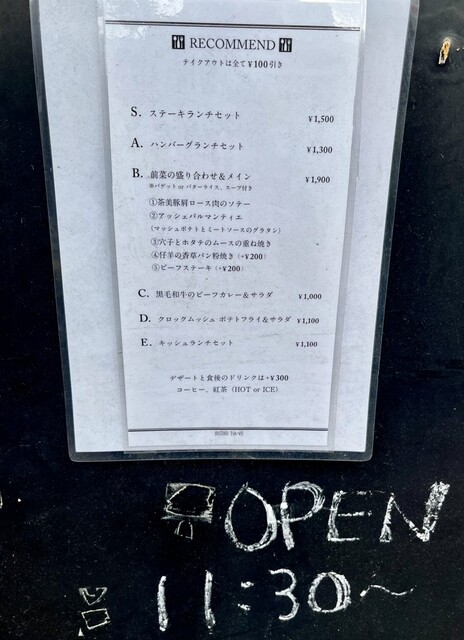 RECOMMEND
テイクアウトは全て¥100引き
S. ステーキランチセット ¥1,500
A. ハンバーグランチセット ¥1,300
B. 前菜の盛り合わせ&メイン ¥1,900
※バゲット or バターライス、スープ付き
①茶美豚肩ロース肉のソテー
②アッシェパルマンティエ
(マッシュポテトとミートソースのグラタン)
③穴子とホタテのムースの重ね焼き
④仔羊の香草パン粉焼き (+¥200)
⑤ビーフステーキ (+¥200)
C. 黒毛和牛のビーフカレー&サラダ ¥1,000
D. クロックムッシュ ポテトフライ&サラダ ¥1,100
E. キッシュランチセット ¥1,100
デザートと食後のドリンクは+¥300
コーヒー、紅茶 (HOT or ICE)
OPEN
11:30~